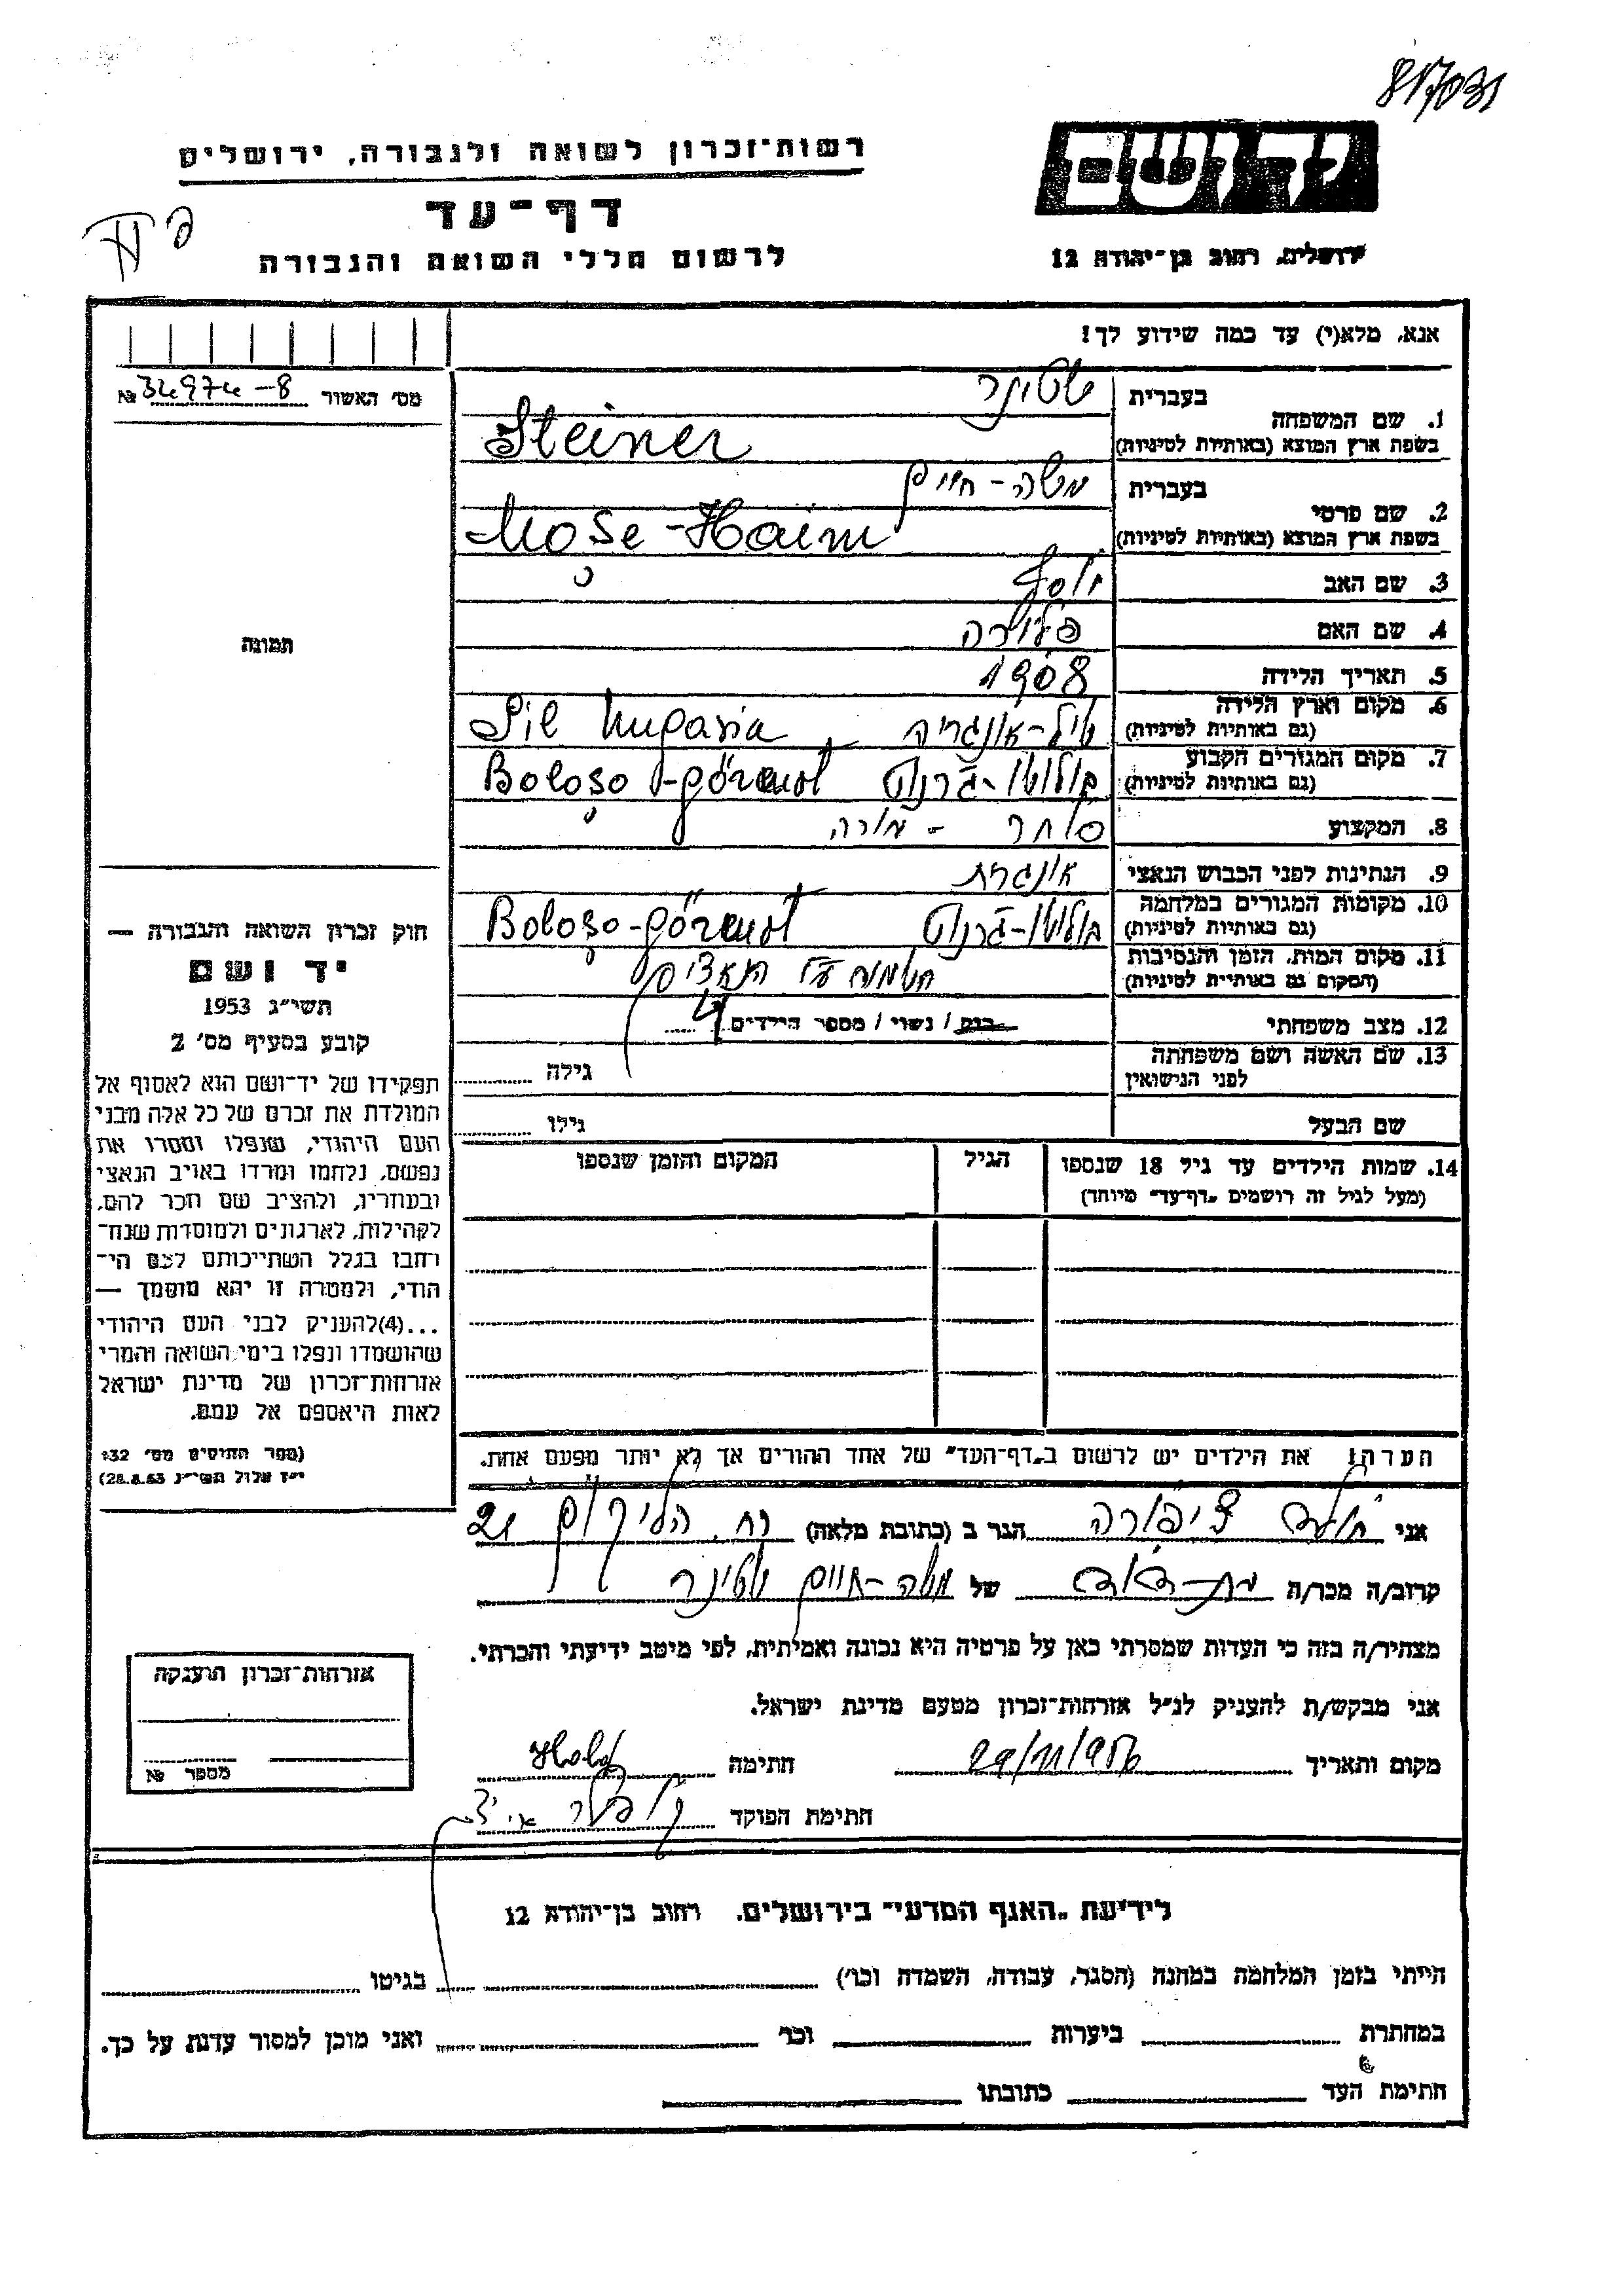 817031
רשות־זכרון לשואה ולגבורה, ירושלים
דף־עד
לרשום חללי השואה והגבורה
יד ושם
ירושלים, רחוב בן־יהודה 12
אנא, מלא(י) עד כמה שידוע לך!
מס׳ האשור № 34974-8
1. שם המשפחה
בעברית שטינר
בשפת ארץ המוצא (באותיות לטיניות) Steiner
2. שם פרטי
בעברית משה-חיים
בשפת ארץ המוצא (באותיות לטיניות) Moşe-Haim
3. שם האב יוסף
4. שם האם
5. תאריך הלידה 1908
6. מקום וארץ הלידה
(גם באותיות לטיניות) אונגריה
7. מקום המגורים הקבוע
(גם באותיות לטיניות)
8. המקצוע סוחר - מורה
9. הנתינות לפני הכבוש הנאצי אונגרית
10. מקומות המגורים במלחמה
(גם באותיות לטיניות)
11. מקום המות, הזמן והנסיבות
(המקום גם באותיות לטיניות) הנאצים
12. מצב משפחתי רווק / נשוי / מספר הילדים 4
13. שם האשה ושם משפחתה
לפני הנישואין
גילה
שם הבעל
גילו
14. שמות הילדים עד גיל 18 שנספו
(מעל לגיל זה רושמים „דף־עד״ מיוחד)
הגיל
המקום והזמן שנספו
הערה! את הילדים יש לרשום ב„דף־העד״ של אחד ההורים אך לא יותר מפעם אחת.
תמונה
חוק זכרון השואה והגבורה —
יד ושם
תשי״ג 1953
קובע בסעיף מס׳ 2
תפקידו של יד־ושם הוא לאסוף אל
המולדת את זכרם של כל אלה מבני
העם היהודי, שנפלו ומסרו את
נפשם, נלחמו ומרדו באויב הנאצי
ובעוזריו, ולהציב שם וזכר להם,
לקהילות, לארגונים ולמוסדות שנח־
רבו בגלל השתייכותם לעם הי־
הודי, ולמטרה זו יהא מוסמך —
...(4)להעניק לבני העם היהודי
שהושמדו ונפלו בימי השואה והמרי
אזרחות־זכרון של מדינת ישראל
לאות היאספם אל עמם.
(ספר החוקים מס׳ 132
י״ז אלול תשי״ג 28.8.53)
אני ציפורה הגר ב (כתובת מלאה) רח. 21
קרוב/ה מכר/ה בת-דוד של משה-חיים שטינר
מצהיר/ה בזה כי העדות שמסרתי כאן על פרטיה היא נכונה ואמיתית, לפי מיטב ידיעתי והכרתי.
אני מבקש/ת להעניק לנ״ל אזרחות־זכרון מטעם מדינת ישראל.
מקום ותאריך 29/11/956 חתימה
חתימת הפוקד
אזרחות־זכרון הוענקה
מספר №
לידיעת „האגף המדעי״ בירושלים. רחוב בן־יהודה 12
הייתי בזמן המלחמה במחנה (הסגר, עבודה, השמדה וכו׳) בגיטו
במחתרת ביערות וכו׳ ואני מוכן למסור עדות על כך.
חתימת העד כתובתו